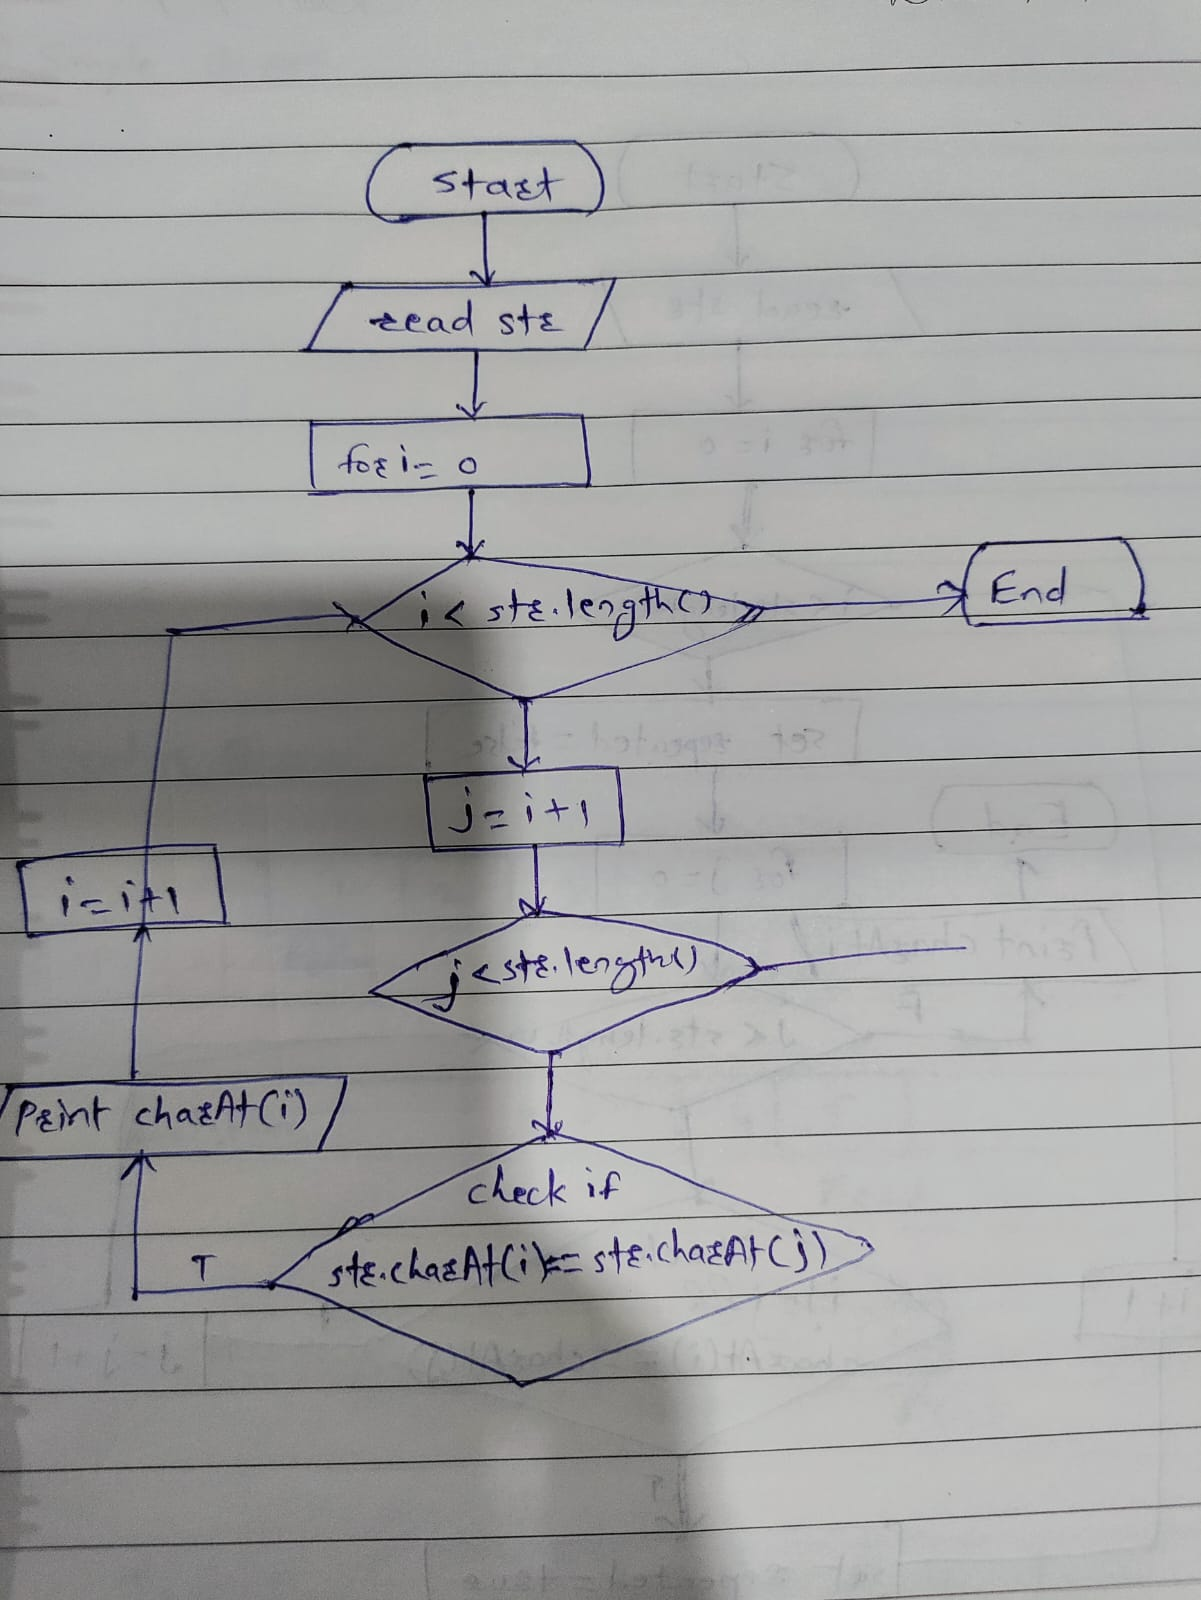 Start
read str
for i = 0
i < str.length()
End
j = i + 1
i = i + 1
j < str.length()
Print charAt(i)
check if
str.charAt(i) == str.charAt(j)
T